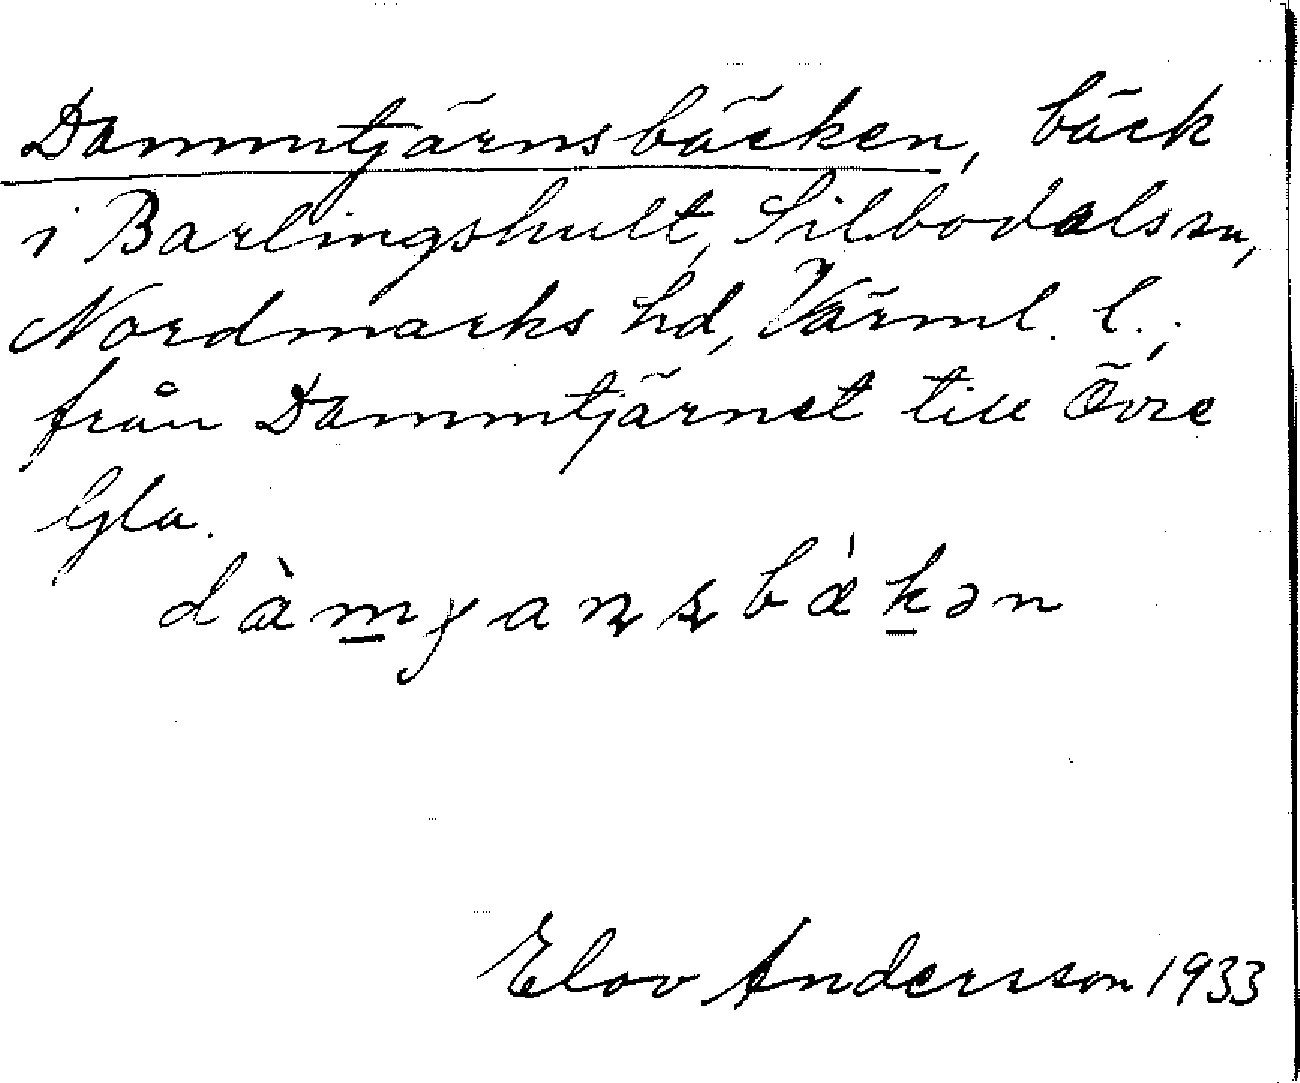 Dammtjärnsbäcken, bäck
i Barlingshult, Silbodals sn,
Nordmarks hd, Värml. l.;
från Dammtjärnet till Övre
Gla.
Elov Andersson 1933